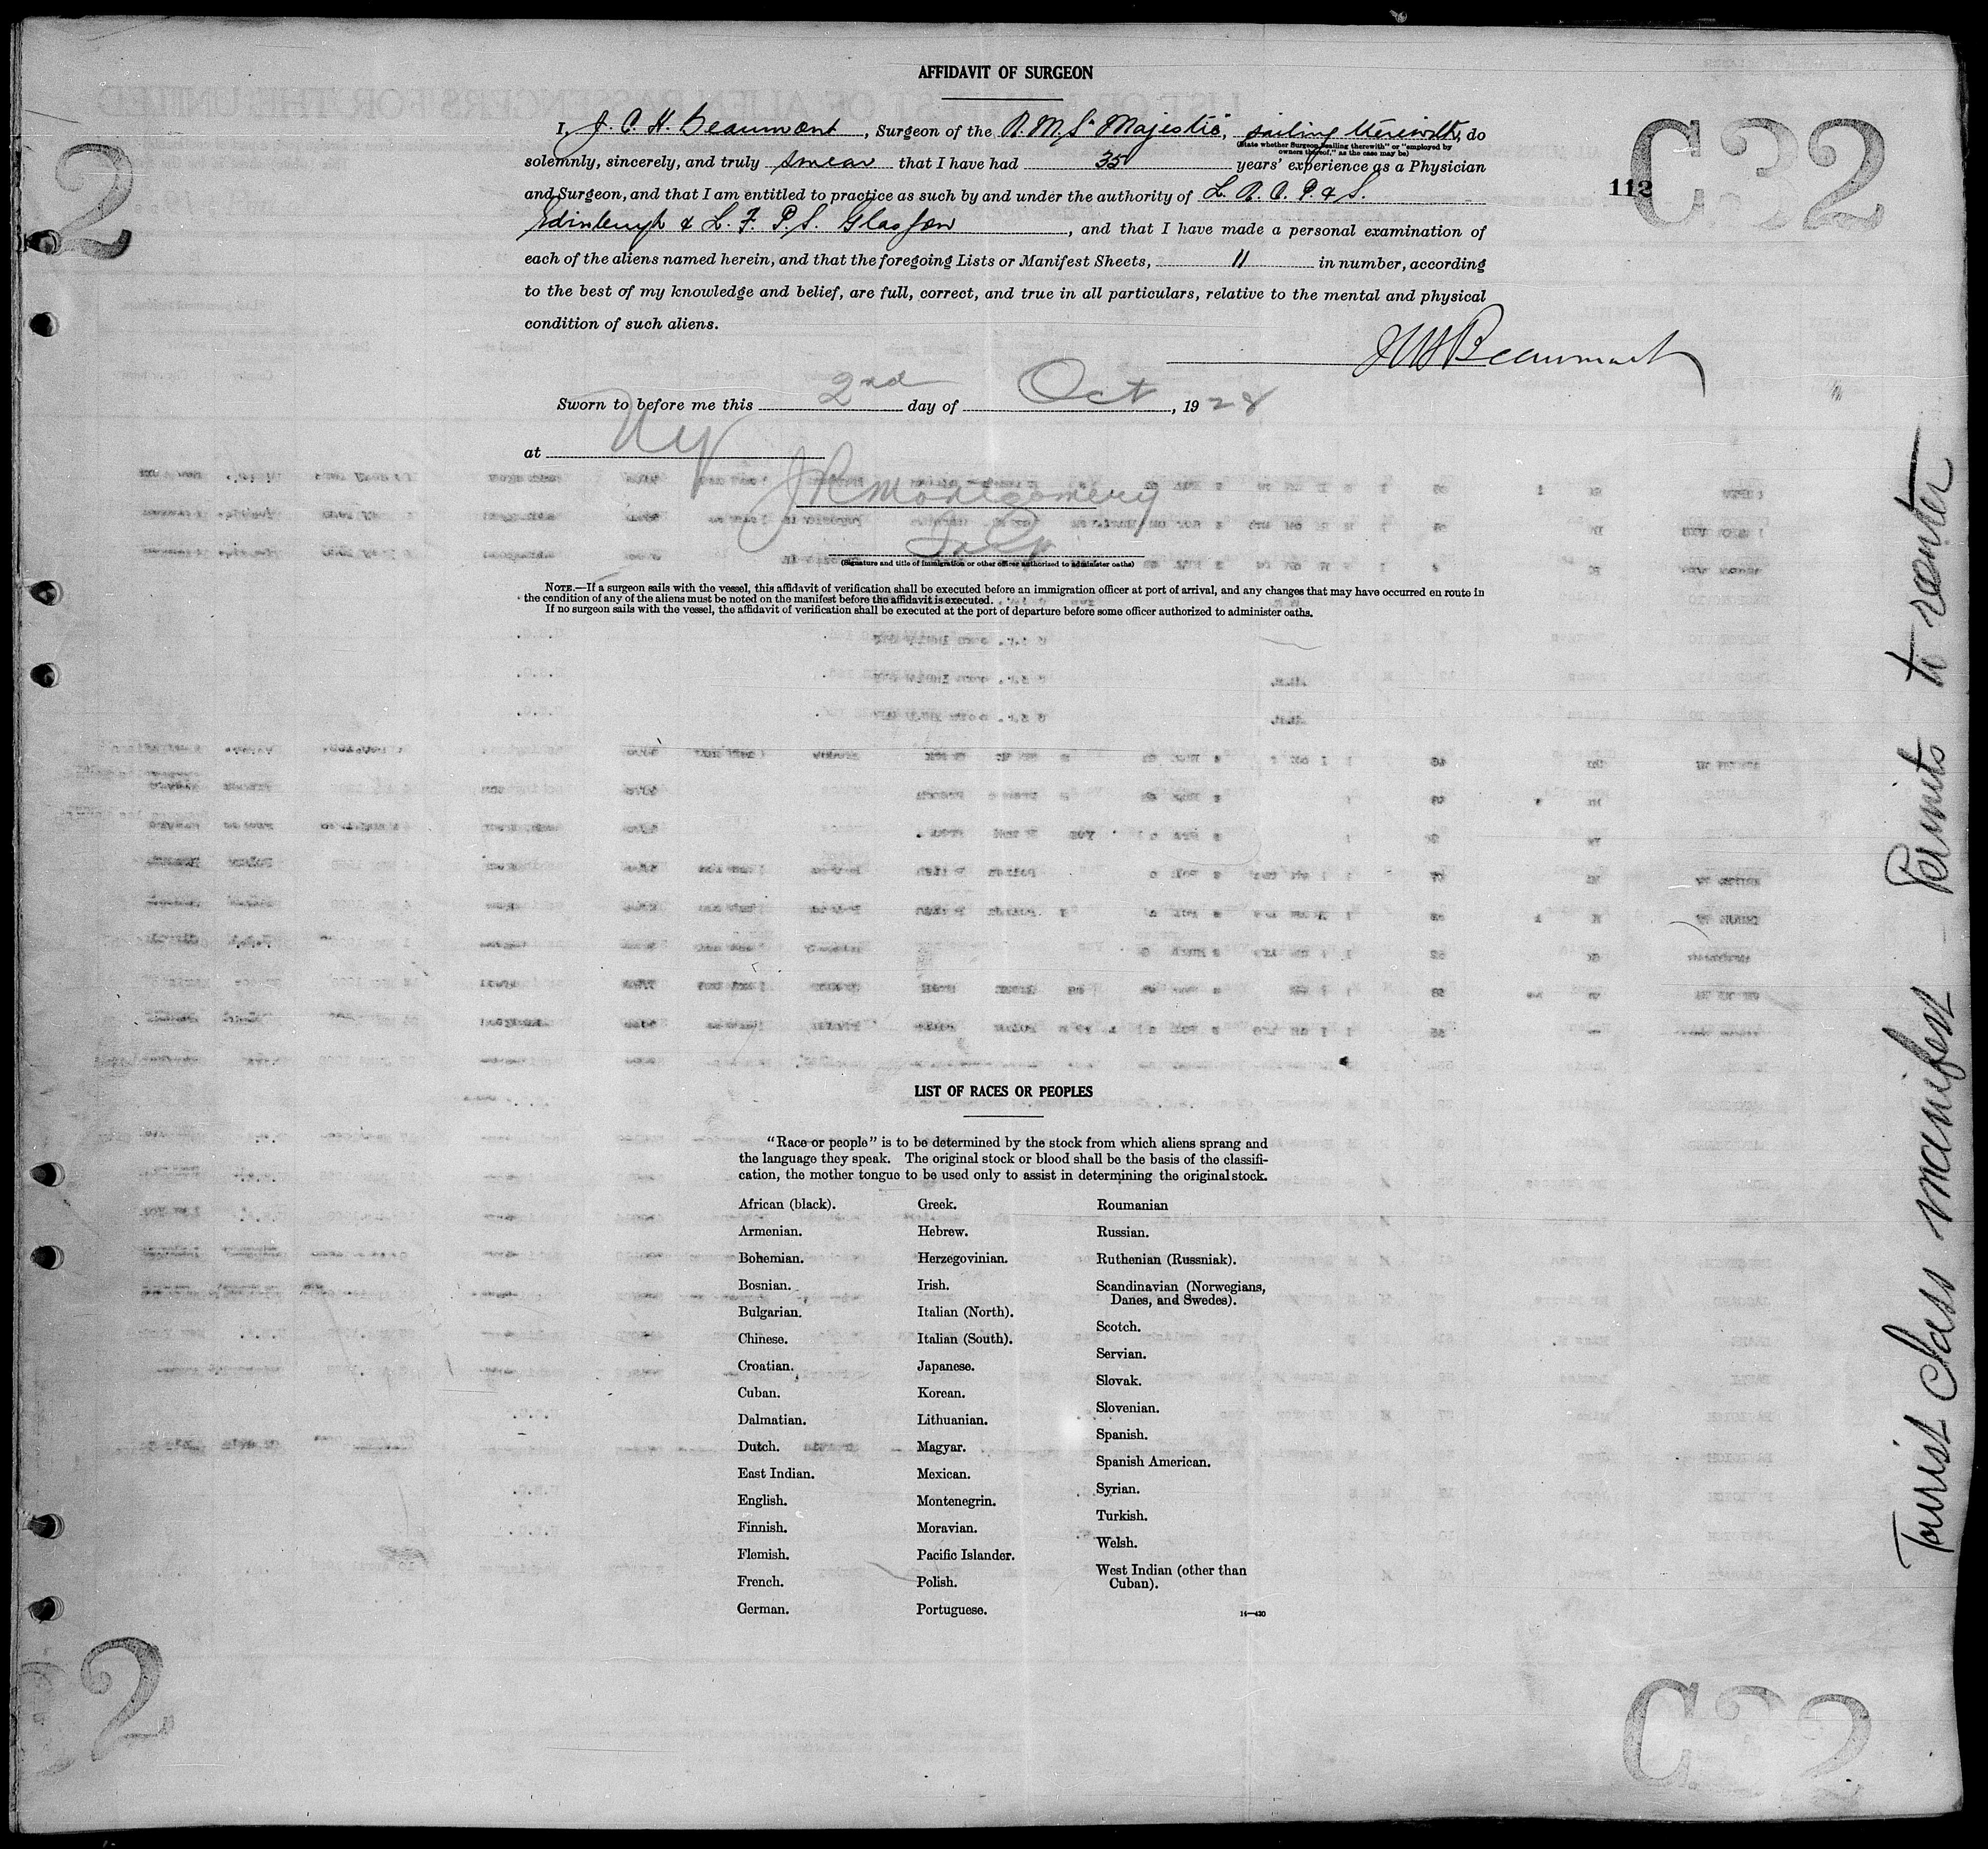 AFFIDAVIT OF SURGEON
I, J. C. H. Beaumont, Surgeon of the R.M.S. "Majestic", sailing therewith, do
(State whether Surgeon "sailing therewith" or "employed by owners thereof," as the case may be)
solemnly, sincerely, and truly swear that I have had 35 years' experience as a Physician
and Surgeon, and that I am entitled to practice as such by and under the authority of L. R. C. P. & S.
Edinburgh & L. F. P. S. Glasgow, and that I have made a personal examination of
each of the aliens named herein, and that the foregoing Lists or Manifest Sheets, 11 in number, according
to the best of my knowledge and belief, are full, correct, and true in all particulars, relative to the mental and physical
condition of such aliens.
JCHBeaumont
Sworn to before me this 2nd day of Oct, 1928
at NY
JR Montgomery
(Signature and title of immigration or other officer authorized to administer oaths)
NOTE.—If a surgeon sails with the vessel, this affidavit of verification shall be executed before an immigration officer at port of arrival, and any changes that may have occurred en route in
the condition of any of the aliens must be noted on the manifest before the affidavit is executed.
If no surgeon sails with the vessel, the affidavit of verification shall be executed at the port of departure before some officer authorized to administer oaths.
LIST OF RACES OR PEOPLES
"Race or people" is to be determined by the stock from which aliens sprang and
the language they speak. The original stock or blood shall be the basis of the classifi-
cation, the mother tongue to be used only to assist in determining the original stock.
African (black).
Armenian.
Bohemian.
Bosnian.
Bulgarian.
Chinese.
Croatian.
Cuban.
Dalmatian.
Dutch.
East Indian.
English.
Finnish.
Flemish.
French.
German.
Greek.
Hebrew.
Herzegovinian.
Irish.
Italian (North).
Italian (South).
Japanese.
Korean.
Lithuanian.
Magyar.
Mexican.
Montenegrin.
Moravian.
Pacific Islander.
Polish.
Portuguese.
Roumanian
Russian.
Ruthenian (Russniak).
Scandinavian (Norwegians,
Danes, and Swedes).
Scotch.
Servian.
Slovak.
Slovenian.
Spanish.
Spanish American.
Syrian.
Turkish.
Welsh.
West Indian (other than
Cuban).
14—430
2
112
C32
2
C32
Tourist Class manifest - Permits to reenter